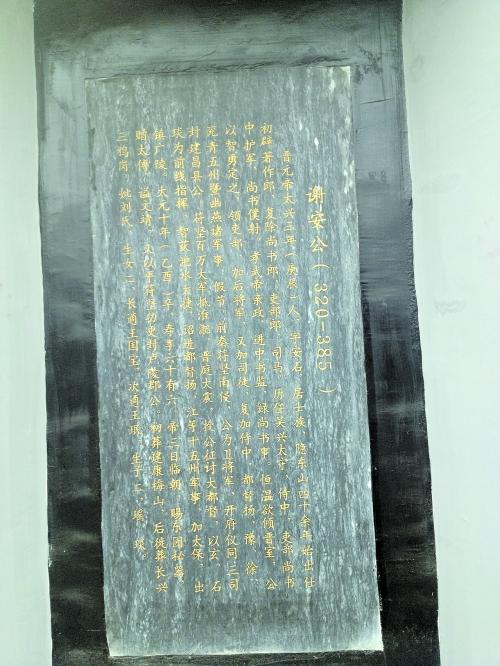 谢安公（320-385）
晋元帝太兴三年（庚辰）人，字安石，居士族，隐东山四十余年始出仕
初辟著作郎，复除尚书郎，吏部郎，司马，历任吴兴太守，侍中，吏部尚书
中护军，尚书仆射，孝武帝亲政，进中书监，録尚书事。恒温欲倾晋室，公
以智勇定之，领吏部，加后将军，又加司徒，复加侍中，都督扬、豫、徐、
兖青五州暨幽燕诸军事，假节，前秦苻坚南侵，公为卫将军，开府仪同三司
封建昌县公，苻坚百万大军抵淮淝，晋庭大震，授公征讨大都督，以玄、石
琰为前线指挥，智获淝水大捷，诏进都督扬、江等十五州军事，加太保，出
镇广陵。太元十年（乙酉）卒，寿享六十有六，帝三日临朝，赐东园秘器，
赠太傅，谥文靖，又以平苻坚功更封卢陵郡公。初葬建康梅山，后徙葬长兴
三鸦岗，妣刘氏，生女二，长适王国宝，次适王珉，生子二，瑶、琰。